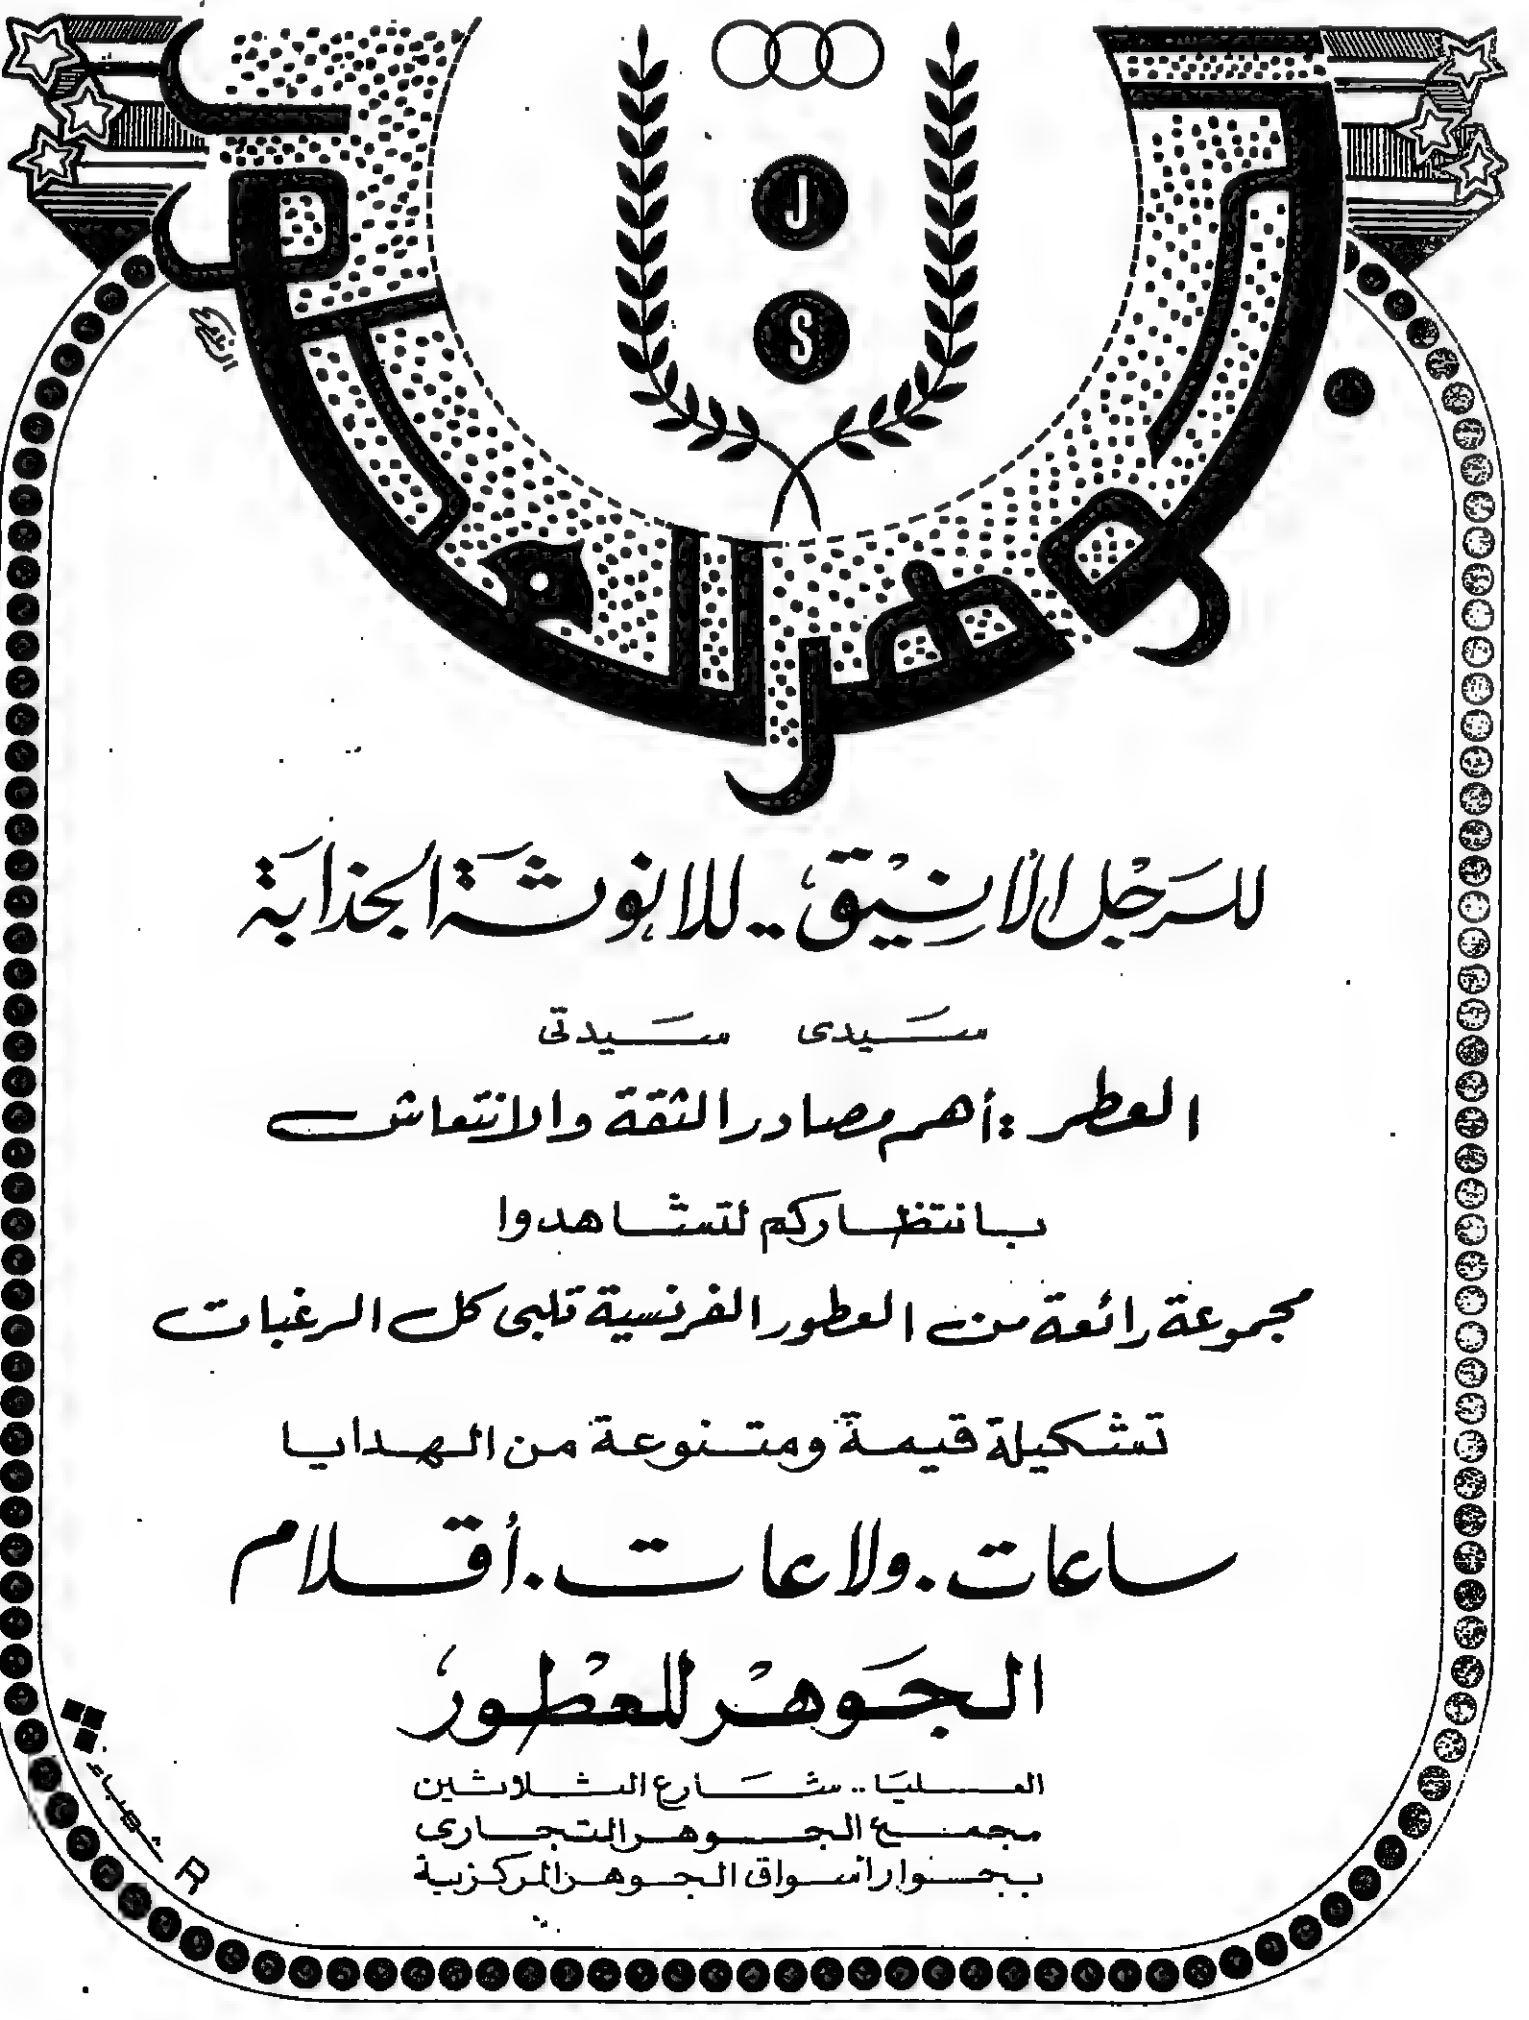 J
S
الجوهر للعطور
للرجل الأنيق .. للانوثة الجذابة
سيدى سيدتى
العطر : أهم مصادر الثقة والانتعاش
بانتظاركم لتشاهدوا
مجموعة رائعة من العطور الفرنسية تلبى كل الرغبات
تشكيلة قيمة ومتنوعة من الهدايا
ساعات . ولاعات . أقلام
الجوهر للعطور
العليا .. شارع الثلاثين
مجمع الجوهر التجارى
بجوار أسواق الجوهر المركزية
R